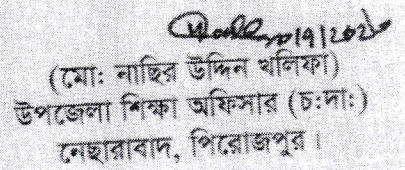 (মো: নাছির উদ্দিন খলিফা)
উপজেলা শিক্ষা অফিসার (চ:দা:)
নেছারাবাদ, পিরোজপুর।